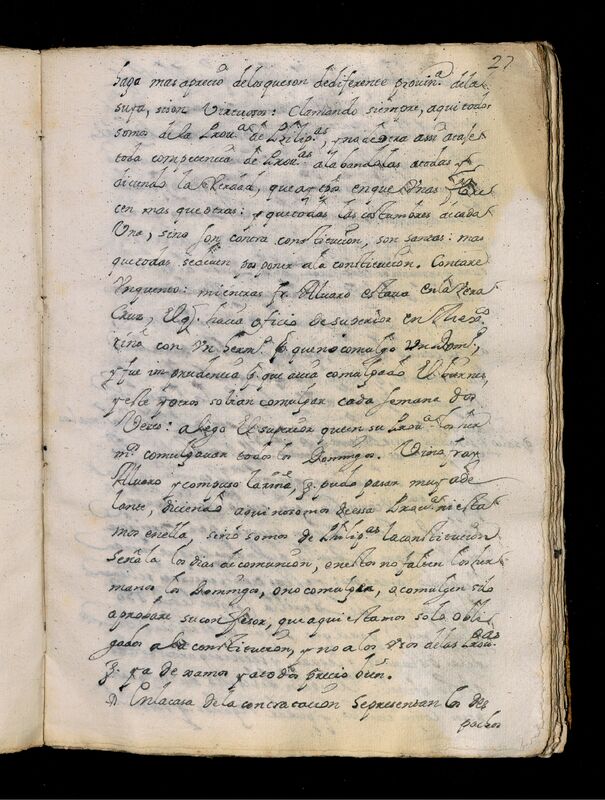 27
haga mas apreçio de los que son de diferente provin.ª de la
suya, si son Virtuosos: clamando siempre, aqui todos
somos de la Prou.ª de Philip.as, y no quiera assi
toda competencia de Prou.as a la banda las
diciendo la Verdad, que en que Vnas
cen mas que otras: y que todas las costumbres de cada
Vna, sino son contra constitucion, son santas: mas
que todas se an de posponer a la constitucion. Contare
Vn quento: mientras fr. Alvaro estava en la Vera
Cruz, hacia oficio de superior en
riño con Vn herm.º p. que no comulgo Vn Dom.º,
y fue imprudencia p. que avia comulgado el biernes,
y este y otros solian comulgar cada semana dos
Veces: alego el superior que en su Prou.ª los her
m.os comulgavan todos los Domingos. Vino fray
Alvaro y compuso la riña, q. pudo pasar muy ade
lante, diciendo aqui no somos de essa Prou.ª ni esta
mos en ella, sino somos de Philip.as la constitucion
señala los dias de comunion, en estos no falten los her
manos los Domingos, o no comulgen, o comulgen si lo
aprobare su confesor, que aqui estamos solo obli
gados a la constitucion, y no a los Vsos de las Prou.as
q. ya dexamos y a todos precio bien.
En la casa de la contratacion se presentan los des
pachos